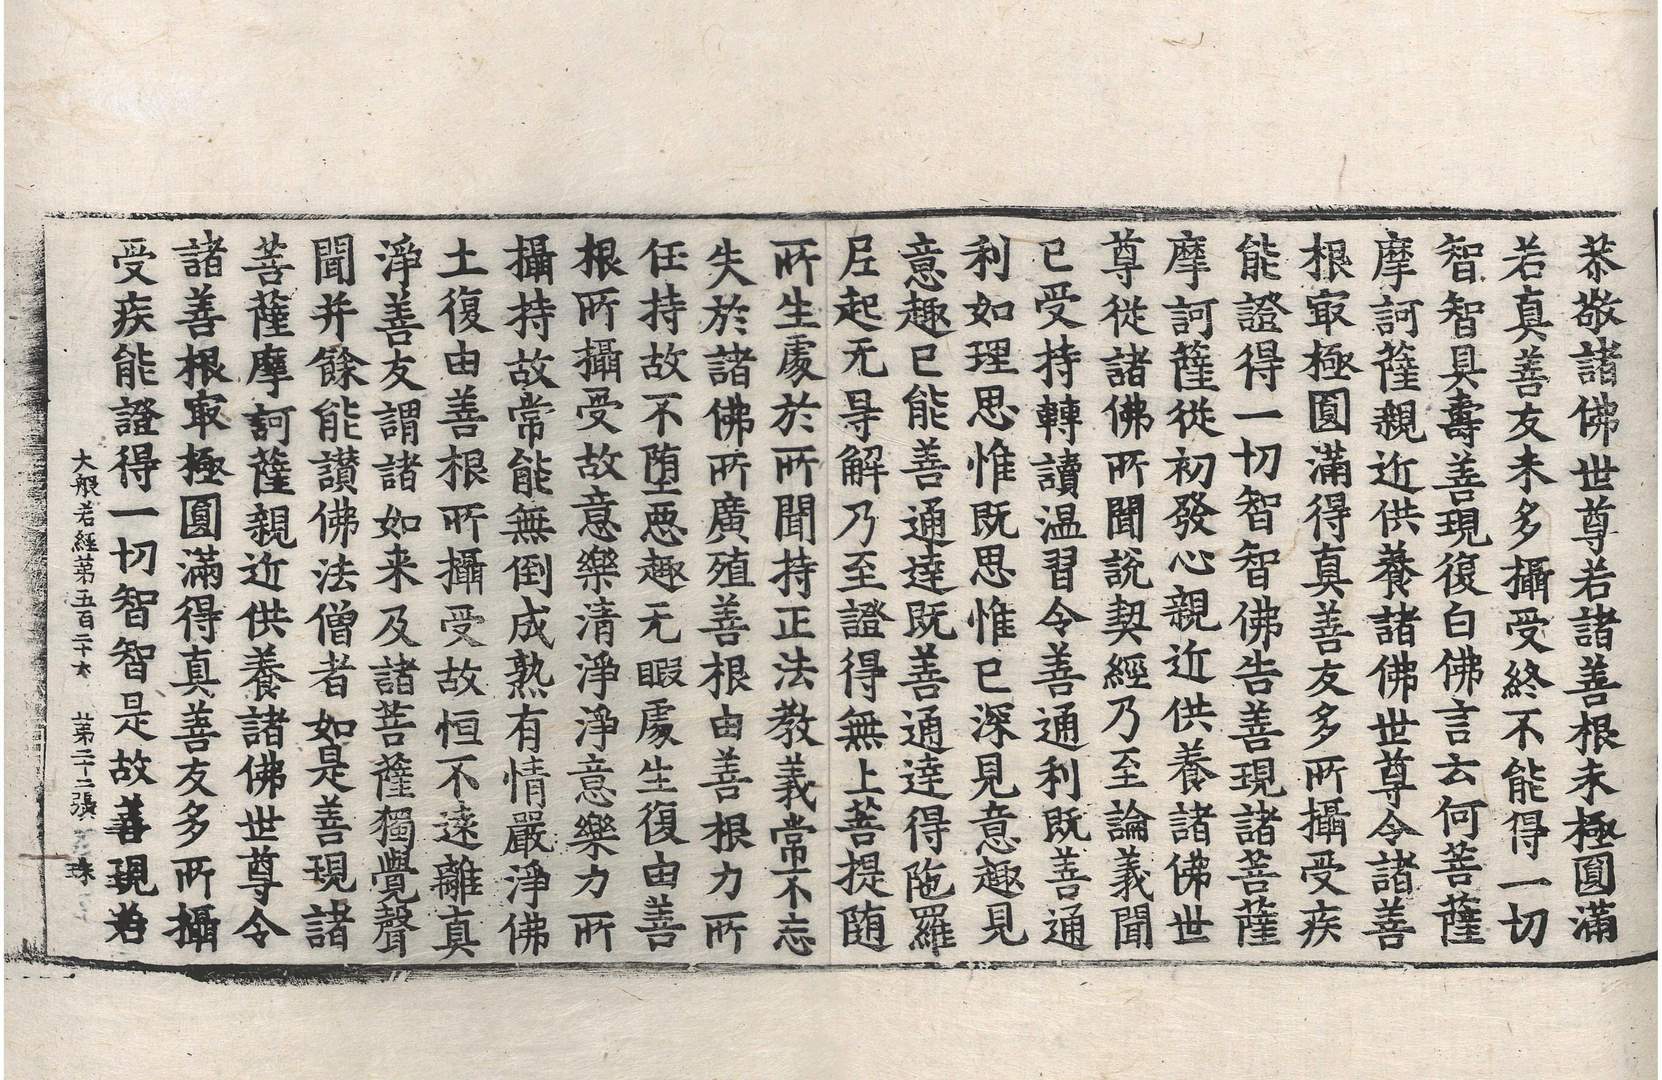 恭敬諸佛世尊若諸善根未極圓滿
若真善友未多攝受終不能得一切
智智具壽善現復白佛言云何菩薩
摩訶薩親近供養諸佛世尊令諸善
根㝡極圓滿得真善友多所攝受疾
能證得一切智智佛告善現諸菩薩
摩訶薩從初發心親近供養諸佛世
尊從諸佛所聞說契經乃至論義聞
已受持轉讀温習令善通利既善通
利如理思惟既思惟已深見意趣見
意趣已能善通達既善通達得陁羅
尼起无㝵解乃至證得無上菩提随
所生處於所聞持正法教義常不忘
失於諸佛所廣殖善根由善根力所
任持故不堕惡趣无暇處生復由善
根所攝受故意樂清淨淨意樂力所
攝持故常能無倒成熟有情嚴淨佛
土復由善根所攝受故恒不遠離真
淨善友謂諸如来及諸菩薩獨覺聲
聞并餘能讃佛法僧者如是善現諸
菩薩摩訶薩親近供養諸佛世尊令
諸善根㝡極圓滿得真善友多所攝
受疾能證得一切智智是故善現若
大般若經第五百二十六 第二十二張 珠